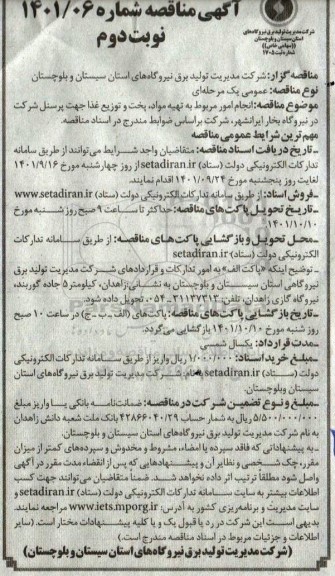 آگهی مناقصه شماره ۱۴۰۱/۰۶
نوبت دوم
شرکت مدیریت تولید برق نیروگاه‌های
استان سیستان و بلوچستان
((سهامی خاص))
مناقصه‌گزار: شرکت مدیریت تولید برق نیروگاه‌های استان سیستان و بلوچستان
نوع مناقصه: عمومی یک مرحله‌ای
موضوع مناقصه: انجام امور مربوط به تهیه مواد، پخت و توزیع غذا جهت پرسنل شرکت
در نیروگاه بخار ایرانشهر، شرکت براساس ضوابط مندرج در اسناد مناقصه.
مهم‌ترین شرایط عمومی مناقصه
ـ تاریخ دریافت اسناد مناقصه: متقاضیان واجد شرایط می‌توانند از طریق سامانه
تدارکات الکترونیکی دولت (ستاد) setadiran.ir از روز چهارشنبه مورخ ۱۴۰۱/۹/۱۶
لغایت روز پنجشنبه مورخ ۱۴۰۱/۰۹/۲۴ اقدام نمایند.
ـ فروش اسناد: از طریق سامانه تدارکات الکترونیکی دولت (ستاد) www.setadiran.ir
ـ تاریخ تحویل پاکت‌های مناقصه: حداکثر تا ساعت ۹ صبح روز شنبه مورخ
۱۴۰۱/۱۰/۱۰
ـ محل تحویل و بازگشایی پاکت‌های مناقصه: از طریق سامانه تدارکات
الکترونیکی دولت (ستاد) setadiran.ir
ـ توضیح اینکه «پاکت الف» به امور تدارکات و قراردادهای شرکت مدیریت تولید برق
نیروگاهی استان سیستان و بلوچستان به نشانی: زاهدان، کیلومتر ۵ جاده گوربند،
نیروگاه گازی زاهدان، تلفن: ۳۱۱۳۷۳۱۳ـ۰۵۴ تحویل داده شود.
ـ تاریخ بازگشایی پاکت‌های مناقصه: پاکت‌های (الف ـ ب ـ ج) در ساعت ۱۰ صبح
روز شنبه مورخ ۱۴۰۱/۱۰/۱۰ بازگشایی می‌گردد.
ـ مدت قرارداد: یکسال شمسی
ـ مبلغ خرید اسناد: ۱/۰۰۰/۰۰۰ ریال واریز از طریق سامانه تدارکات الکترونیکی
دولت (ستاد) setadiran.ir بنام: شرکت مدیریت تولید برق نیروگاه‌های استان
سیستان وبلوچستان.
ـ مبلغ و نوع تضمین شرکت در مناقصه: ضمانت‌نامه بانکی یا واریز مبلغ
۵/۵۰۰/۰۰۰/۰۰۰ ریال به شماره حساب ۴۳۸۶۶۰۴۰/۲۹ بانک ملت شعبه دانش زاهدان
به نام شرکت مدیریت تولید برق نیروگاه‌های استان سیستان و بلوچستان.
ـ به پیشنهاداتی که فاقد سپرده یا امضاء، مشروط و مخدوش و سپرده‌های کمتر از میزان
مقرر، چک شخصی و نظایر آن و پیشنهادهایی که پس از انقضاء مدت مقرر در آگهی
واصل شود مطلقاً ترتیب اثر داده نخواهد شد. ضمنا متقاضیان می‌توانند جهت کسب
اطلاعات بیشتر به سایت سامانه تدارکات الکترونیکی دولت (ستاد) setadiran.ir و
سایت مدیریت و برنامه‌ریزی کشور به آدرس: www.iets.mporg.ir مراجعه نمایند.
بدیهی است این شرکت در رد یا قبول یک و یا کلیه پیشنهادات مختار است. (سایر
اطلاعات و جزئیات مربوط در اسناد مناقصه مندرج است.)
(شرکت مدیریت تولید برق نیروگاه‌های استان سیستان و بلوچستان)